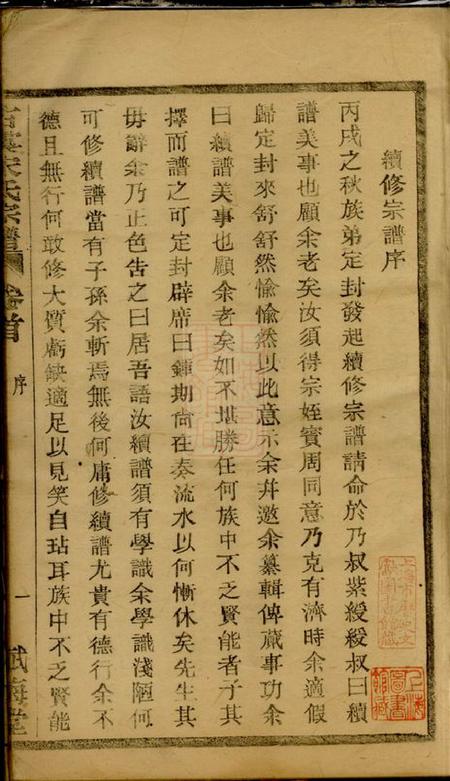 續修宗譜序
丙戌之秋族弟定封發起續修宗譜請命於乃叔紫綬綬叔曰續
譜美事也顧余老矣汝須得宗姪寶周同意乃克有濟時余適假
歸定封來舒舒然愉愉然以此意示余幷邀余纂輯俾蕆事功余
曰續譜美事也顧余老矣如不堪勝任何族中不乏賢能者子其
擇而譜之可定封辟席曰鍾期尙在奏流水以何慚休矣先生其
毋辭余乃正色告之曰居吾語汝續譜須有學識余學識淺陋何
可修續譜當有子孫余斬焉無後何庸修續譜尤貴有德行余不
德且無行何敢修大質虧缺適足以見笑自玷耳族中不乏賢能
宋氏宗譜
卷首
序
一